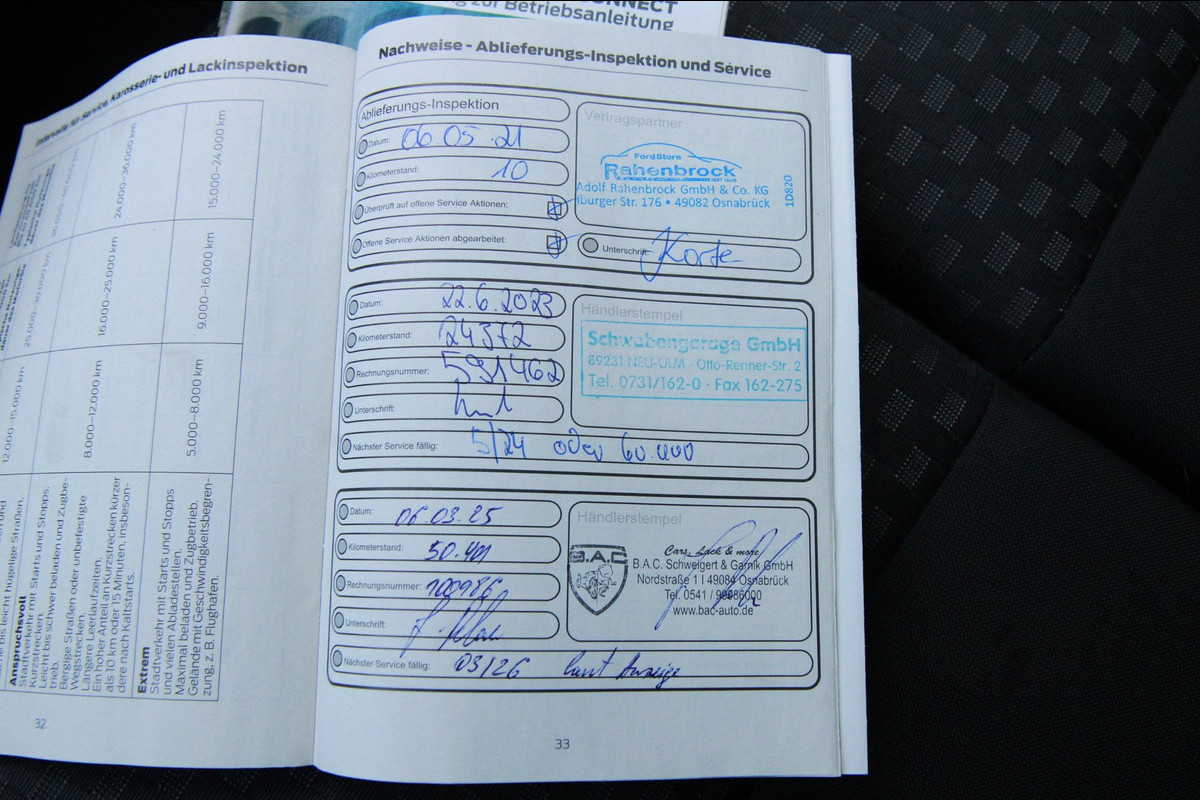 NNECT
zur Betriebsanleitung
Intervalle für Service, Karosserie- und Lackinspektion
24.000–36.000 km
15.000–24.000 km
25.000–30.000 km
16.000–25.000 km
9.000–16.000 km
12.000–15.000 km
8.000–12.000 km
5.000–8.000 km
bis leicht hügelige Straßen.
Anspruchsvoll
Stadtverkehr mit Starts und Stopps.
Kurzstrecken.
Leicht bis schwer beladen und Zugbe-
trieb.
Bergige Straßen oder unbefestigte
Wegstrecken.
Längere Leerlaufzeiten.
Ein hoher Anteil an Kurzstrecken kürzer
als 10 km oder 15 Minuten, insbeson-
dere nach Kaltstarts.
Extrem
Stadtverkehr mit Starts und Stopps
und vielen Abladestellen.
Maximal beladen und Zugbetrieb.
Gelände mit Geschwindigkeitsbegren-
zung, z. B. Flughafen.
32
Nachweise - Ablieferungs-Inspektion und Service
Ablieferungs-Inspektion
Datum: 06 05.21
Kilometerstand: 10
Überprüft auf offene Service Aktionen:
Offene Service Aktionen abgearbeitet:
Vertragspartner
FordStore
Rahenbrock
Adolf Rahenbrock GmbH & Co. KG
Iburger Str. 176 • 49082 Osnabrück
1D820
Unterschrift: Korte
Datum: 22.6.2023
Kilometerstand: 24372
Rechnungsnummer: 591462
Unterschrift:
Nächster Service fällig: 5/24 oder 60.000
Händlerstempel
Schwabengarage GmbH
89231 NEU-ULM · Otto-Renner-Str. 2
Tel. 0731/162-0 · Fax 162-275
Datum: 06.03.25
Kilometerstand: 50.401
Rechnungsnummer: 100986
Unterschrift:
Nächster Service fällig: 03/26 laut Anzeige
Händlerstempel
B.A.C
Cars, Lack & more
B.A.C. Schweigert & Garnik GmbH
Nordstraße 1 I 49084 Osnabrück
Tel. 0541 / 99686000
www.bac-auto.de
33